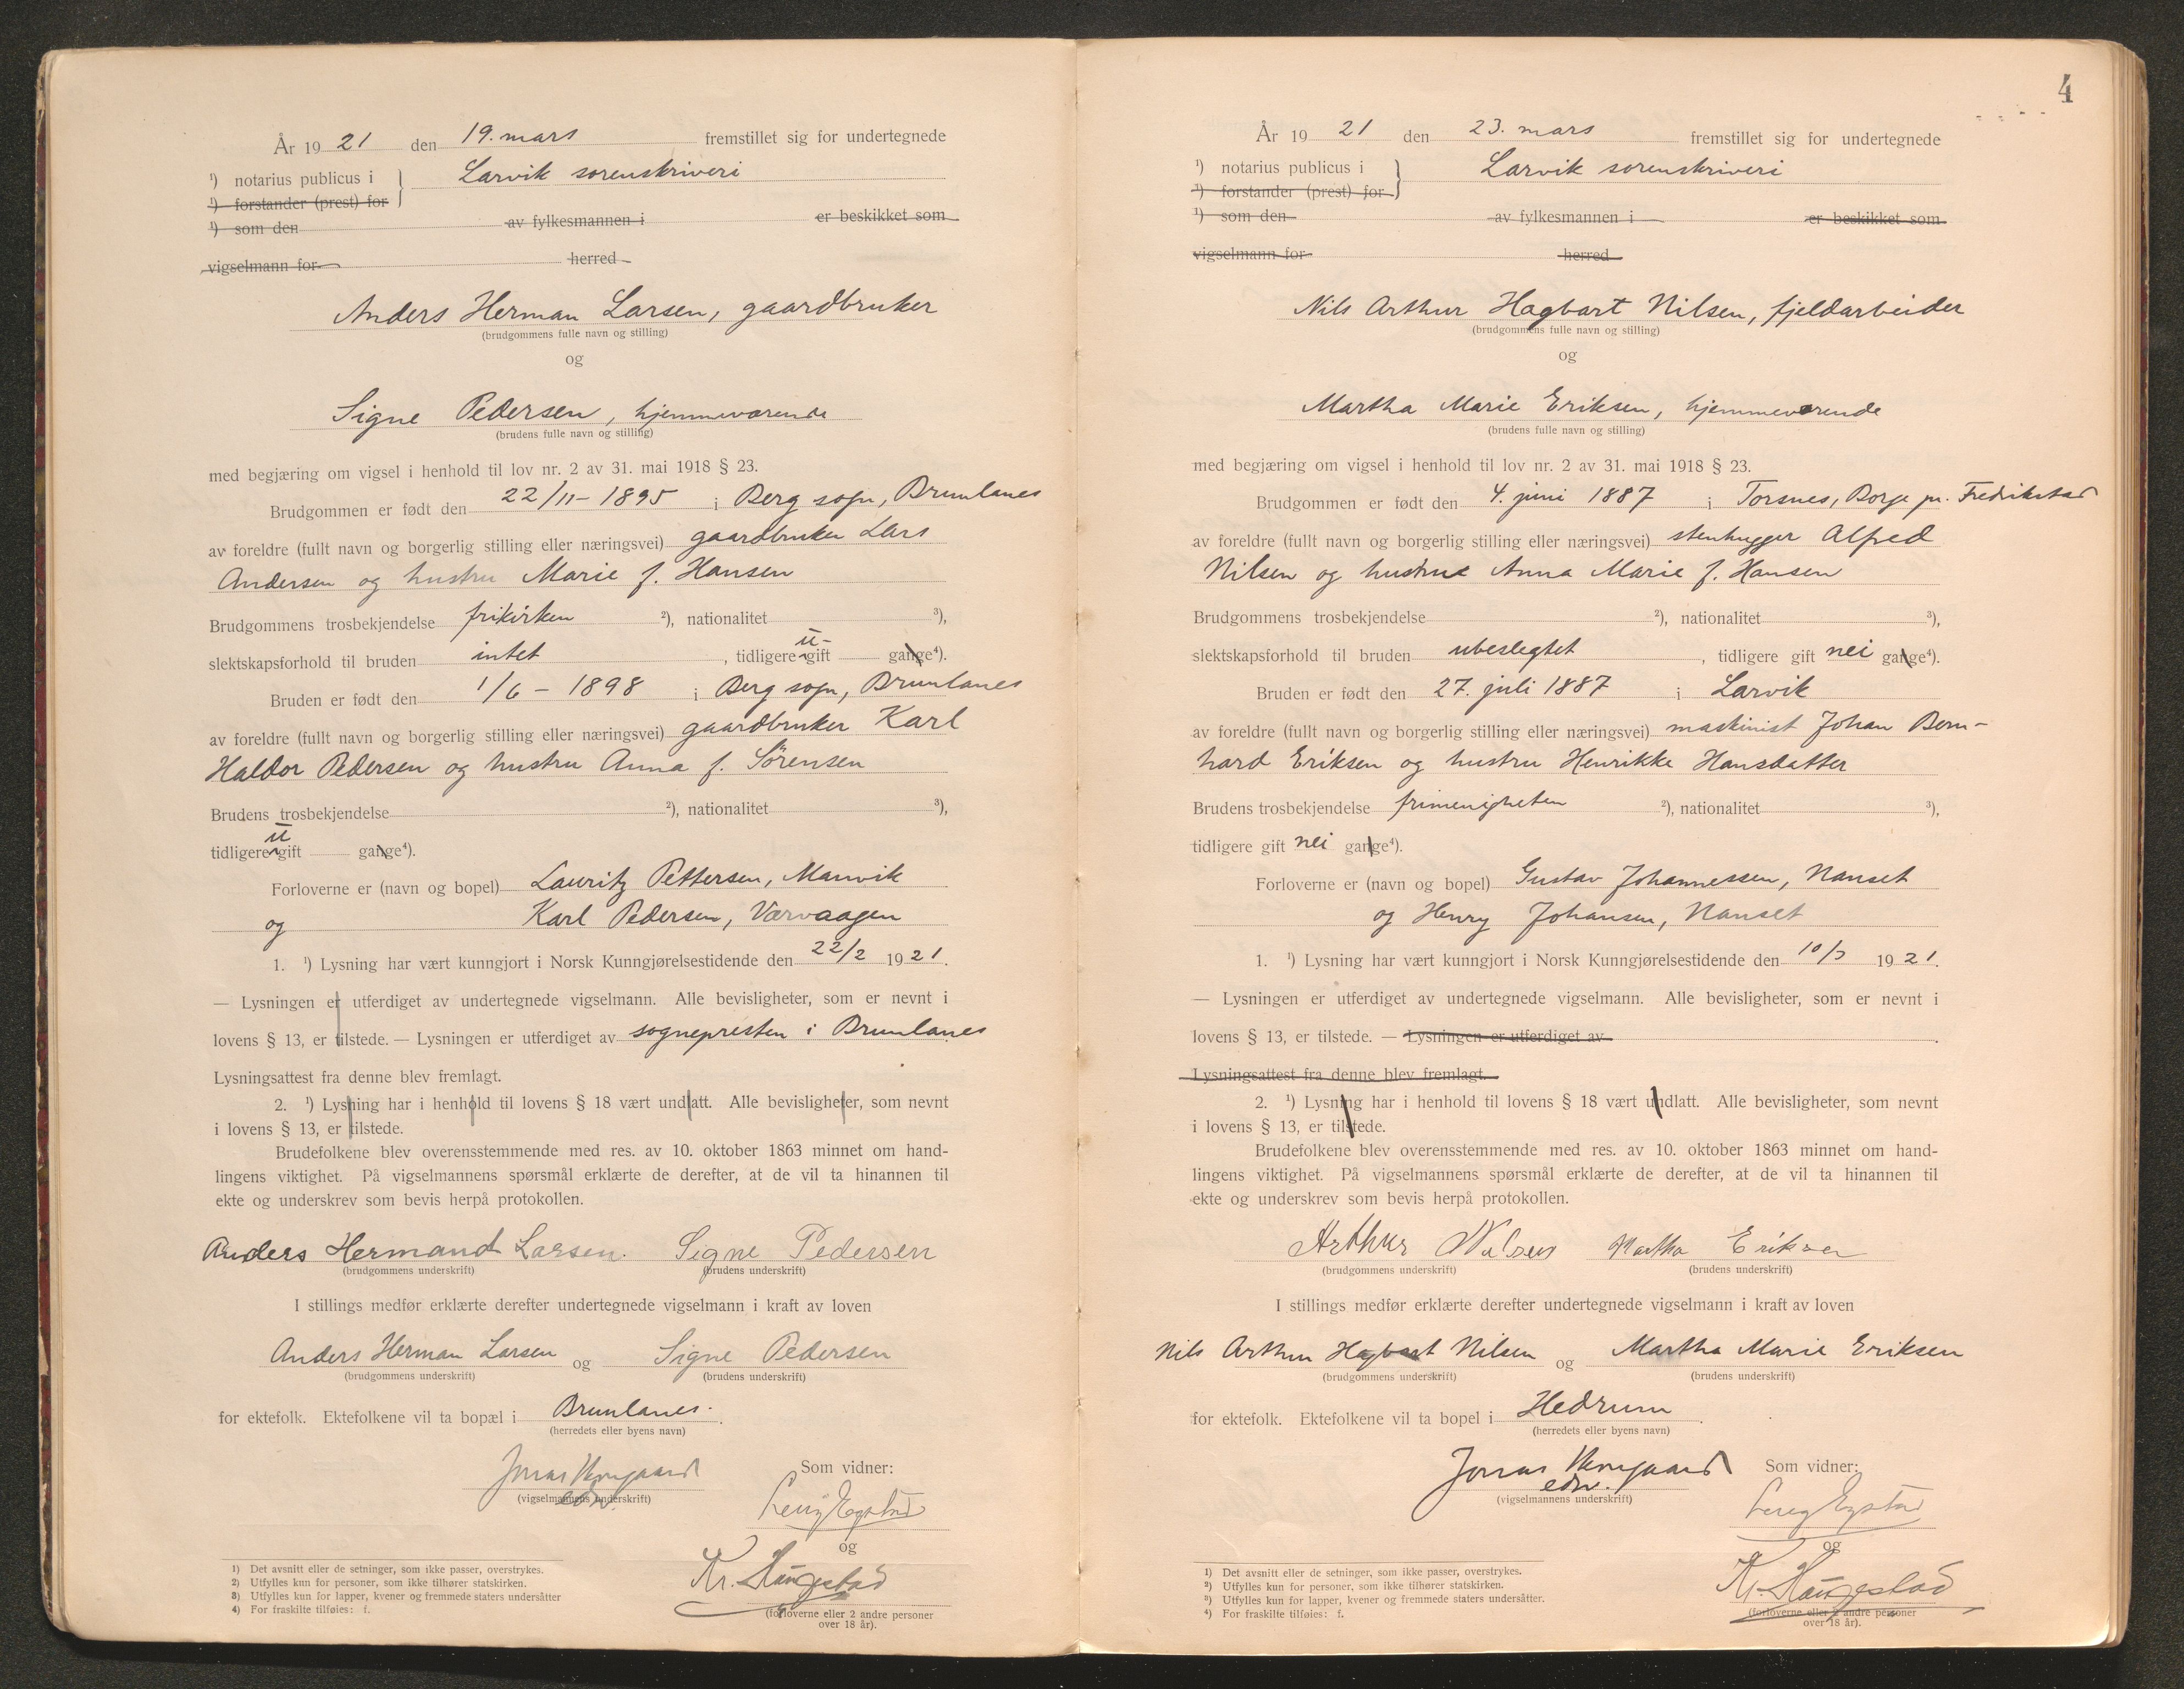 År 19 21 den 19. mars fremstillet sig for undertegnede
¹) notarius publicus i } Larvik sorenskriveri
¹) forstander (prest) for
¹) som den av fylkesmannen i er beskikket som
vigselmann for herred
Anders Herman Larsen, gaardbruker
(brudgommens fulle navn og stilling)
og
Signe Pedersen, hjemmeværende
(brudens fulle navn og stilling)
med begjæring om vigsel i henhold til lov nr. 2 av 31. mai 1918 § 23.
Brudgommen er født den 22/11 - 1895 i Berg sogn, Brunlanes
av foreldre (fullt navn og borgerlig stilling eller næringsvei) gaardbruker Lars
Andersen og hustru Marie f. Hansen
Brudgommens trosbekjendelse frikirken ²), nationalitet ³),
slektskapsforhold til bruden intet , tidligere u-gift gange⁴).
Bruden er født den 1/6 - 1898 i Berg sogn, Brunlanes
av foreldre (fullt navn og borgerlig stilling eller næringsvei) gaardbruker Karl
Haldor Pedersen og hustru Anna f. Sörensen
Brudens trosbekjendelse ²), nationalitet ³),
tidligere u gift gange⁴).
Forloverne er (navn og bopel) Lauritz Pettersen, Manvik
og Karl Pedersen, Værvaagen
1. ¹) Lysning har vært kunngjort i Norsk Kunngjørelsestidende den 22/2 19 21.
— Lysningen er utferdiget av undertegnede vigselmann. Alle bevisligheter, som er nevnt i
lovens § 13, er tilstede. — Lysningen er utferdiget av sognepresten i Brunlanes
Lysningsattest fra denne blev fremlagt.
2. ¹) Lysning har i henhold til lovens § 18 vært undlatt. Alle bevisligheter, som nevnt
i lovens § 13, er tilstede.
Brudefolkene blev overensstemmende med res. av 10. oktober 1863 minnet om hand-
lingens viktighet. På vigselmannens spørsmål erklærte de derefter, at de vil ta hinannen til
ekte og underskrev som bevis herpå protokollen.
Anders Hermand Larsen. Signe Pedersen
(brudgommens underskrift) (brudens underskrift)
I stillings medfør erklærte derefter undertegnede vigselmann i kraft av loven
Anders Herman Larsen og Signe Pedersen
(brudgommens underskrift) (brudens underskrift)
for ektefolk. Ektefolkene vil ta bopæl i Brunlanes.
(herredets eller byens navn)
Jonas
edv.
(vigselmannens underskrift)
Som vidner:
og
Kr. Haugestad
(forloverne eller 2 andre personer
over 18 år).
1) Det avsnitt eller de setninger, som ikke passer, overstrykes.
2) Utfylles kun for personer, som ikke tilhører statskirken.
3) Utfylles kun for lapper, kvener og fremmede staters undersåtter
4) For fraskilte tilføies: f.
4
År 19 21 den 23. mars fremstillet sig for undertegnede
¹) notarius publicus i } Larvik sorenskriveri
¹) forstander (prest) for
¹) som den av fylkesmannen i er beskikket som
vigselmann for herred
Nils Arthur Hagbart Nilsen, fjeldarbeider
(brudgommens fulle navn og stilling)
og
Martha Marie Eriksen, hjemmeværende
(brudens fulle navn og stilling)
med begjæring om vigsel i henhold til lov nr. 2 av 31. mai 1918 § 23.
Brudgommen er født den 4. juni 1887 i Torsnes, Borge pr. Fredrikstad
av foreldre (fullt navn og borgerlig stilling eller næringsvei) stenhugger Alfred
Nilsen og hustru Anna Marie f. Hansen
Brudgommens trosbekjendelse ²), nationalitet ³),
slektskapsforhold til bruden ubeslegtet , tidligere gift nei gange⁴).
Bruden er født den 27. juli 1887 i Larvik
av foreldre (fullt navn og borgerlig stilling eller næringsvei) maskinist Johan Bern-
hard Eriksen og hustru Henrikke Hansdatter
Brudens trosbekjendelse frimenigheten ²), nationalitet ³),
tidligere gift nei gange⁴).
Forloverne er (navn og bopel) Gustav Johannessen, Nanset
og Henry Johansen, Nanset
1. ¹) Lysning har vært kunngjort i Norsk Kunngjørelsestidende den 10/3 19 21.
— Lysningen er utferdiget av undertegnede vigselmann. Alle bevisligheter, som er nevnt i
lovens § 13, er tilstede. — Lysningen er utferdiget av
Lysningsattest fra denne blev fremlagt.
2. ¹) Lysning har i henhold til lovens § 18 vært undlatt. Alle bevisligheter, som nevnt
i lovens § 13, er tilstede.
Brudefolkene blev overensstemmende med res. av 10. oktober 1863 minnet om hand-
lingens viktighet. På vigselmannens spørsmål erklærte de derefter, at de vil ta hinannen til
ekte og underskrev som bevis herpå protokollen.
Arthur Nilsen Martha Eriksen
(brudgommens underskrift) (brudens underskrift)
I stillings medfør erklærte derefter undertegnede vigselmann i kraft av loven
Nils Arthur Hagbart Nilsen og Martha Marie Eriksen
(brudgommens underskrift) (brudens underskrift)
for ektefolk. Ektefolkene vil ta bopel i Hedrum.
(herredets eller byens navn)
Jonas
edv.
(vigselmannens underskrift)
Som vidner:
og
K. Haugestad
(forloverne eller 2 andre personer
over 18 år).
1) Det avsnitt eller de setninger, som ikke passer, overstrykes.
2) Utfylles kun for personer, som ikke tilhører statskirken.
3) Utfylles kun for lapper, kvener og fremmede staters undersåtter.
4) For fraskilte tilføies: f.